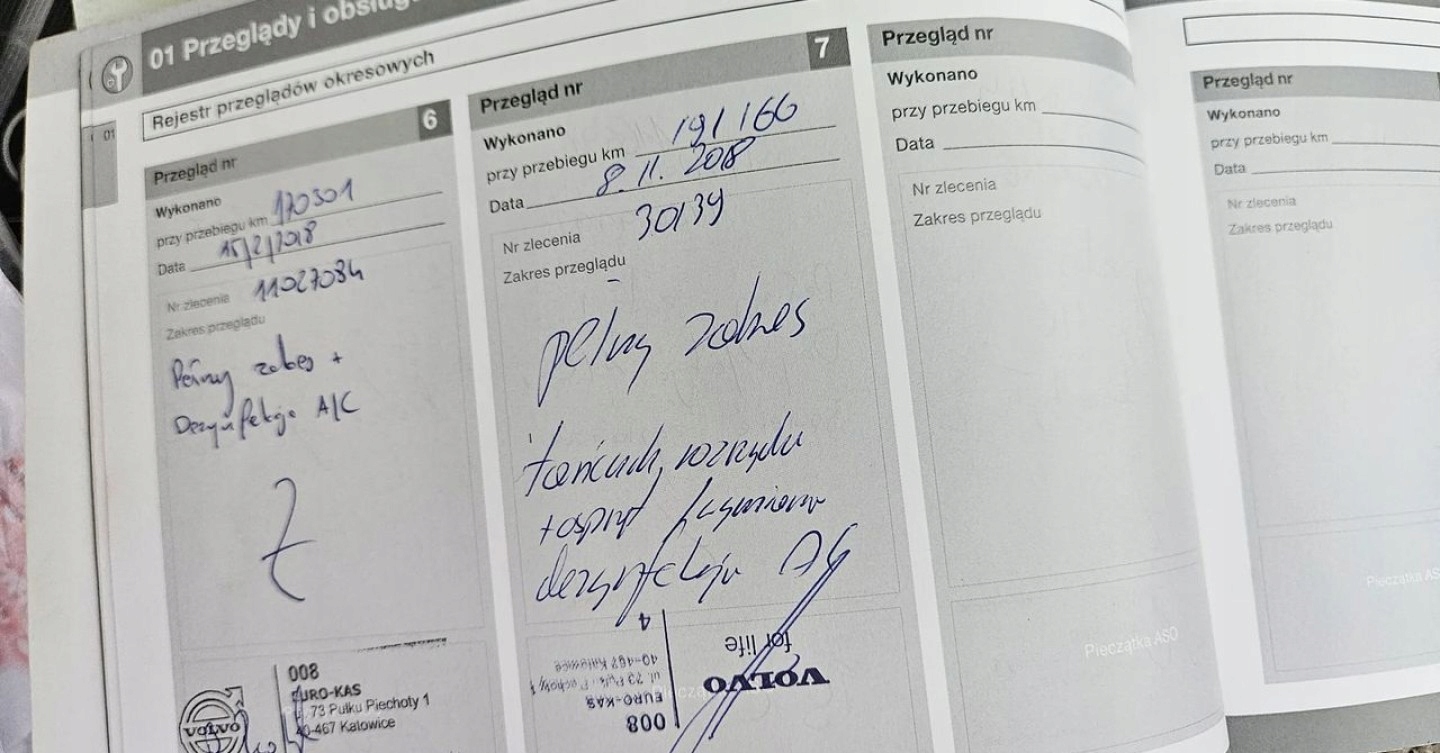 01 Przeglądy i obsług
Rejestr przeglądów okresowych
01
Przegląd nr 6
Wykonano
przy przebiegu km 170301
Data 15/2/2018
Nr zlecenia 11027084
Zakres przeglądu
Pełny zakres +
Dezynfekcja A/C
008
EURO-KAS
73 Pułku Piechoty 1
40-467 Katowice
VOLVO
Przegląd nr 7
Wykonano
przy przebiegu km 191166
Data 8.11.2018
Nr zlecenia 30139
Zakres przeglądu
pełny zakres
łańcuch rozrządu
+ osprzęt
dezynfekcja
VOLVO
for life
008
EURO-KAS
ul. 73 Pułku Piechoty 1
40-467 Katowice
4
Przegląd nr
Wykonano
przy przebiegu km
Data
Nr zlecenia
Zakres przeglądu
Pieczątka ASO
Przegląd nr
Wykonano
przy przebiegu km
Data
Nr zlecenia
Zakres przeglądu
Pieczątka AS